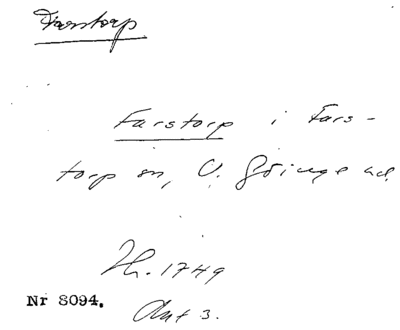 Farstorp
Farstorp i Fars-
torp sn, V. Göinge hd.
Hr. 1749
Nr 8094.
Akt 3.